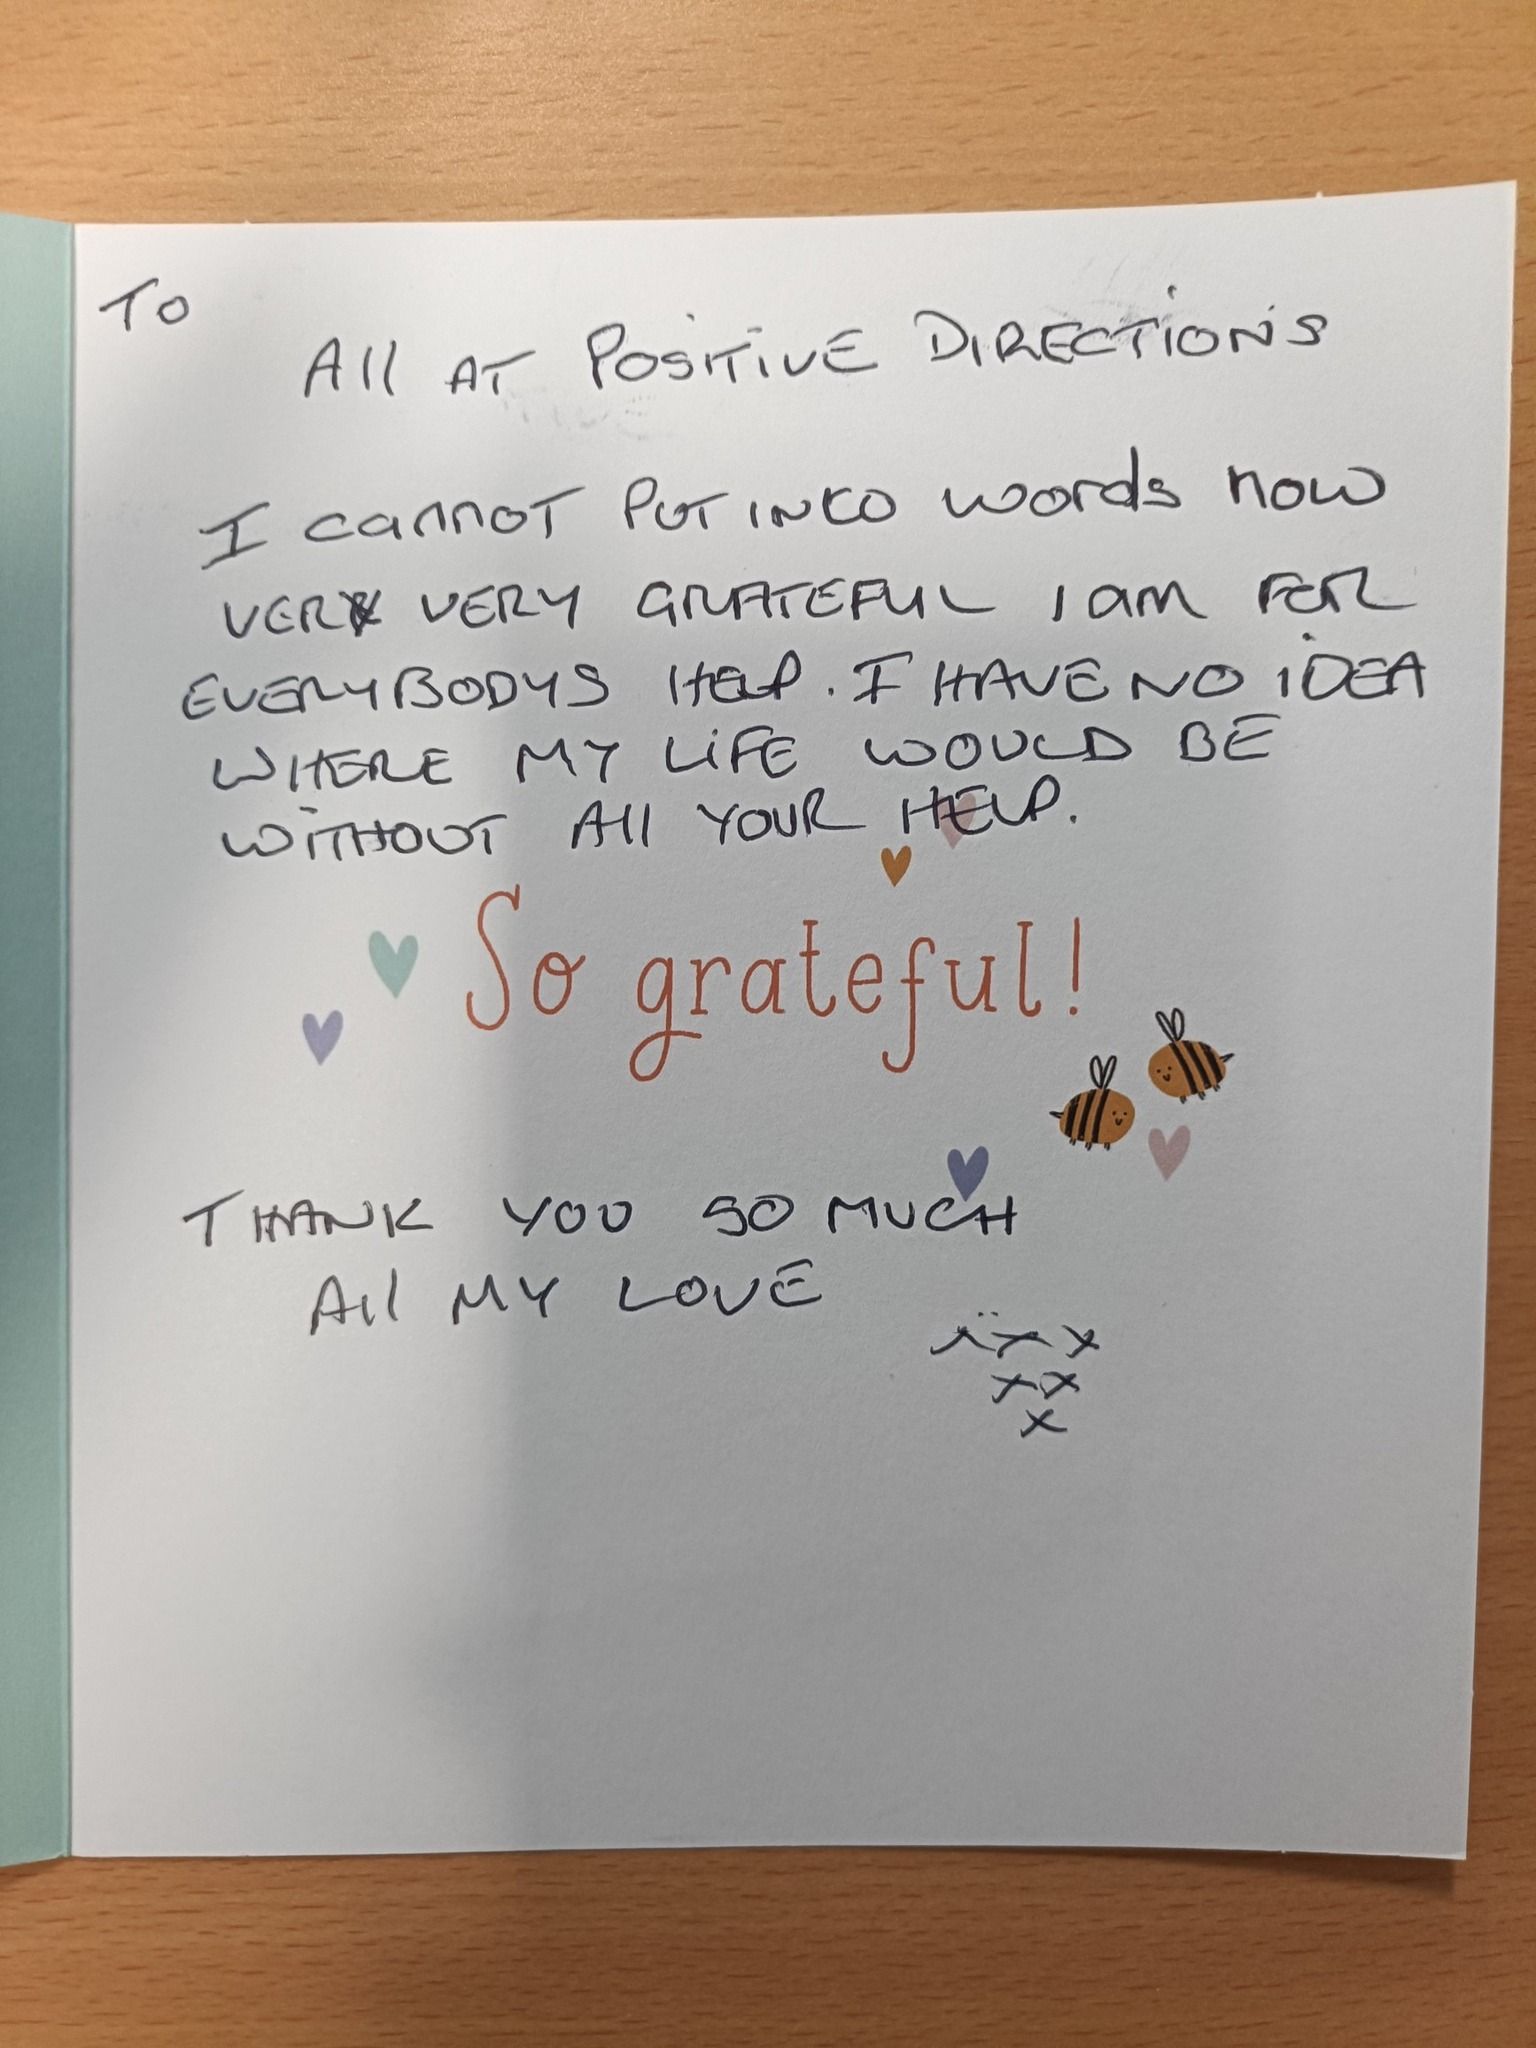 To
All AT POSITIVE DIRECTIONS
I cannot PUT INTO words how
VERY VERY GRATEFUL I am FOR
EVERYBODYS HELP. I HAVE NO IDEA
WHERE MY LIFE WOULD BE
WITHOUT All YOUR HELP.
So grateful!
THANK YOU SO MUCH
All MY LOVE
xxx
xx
x